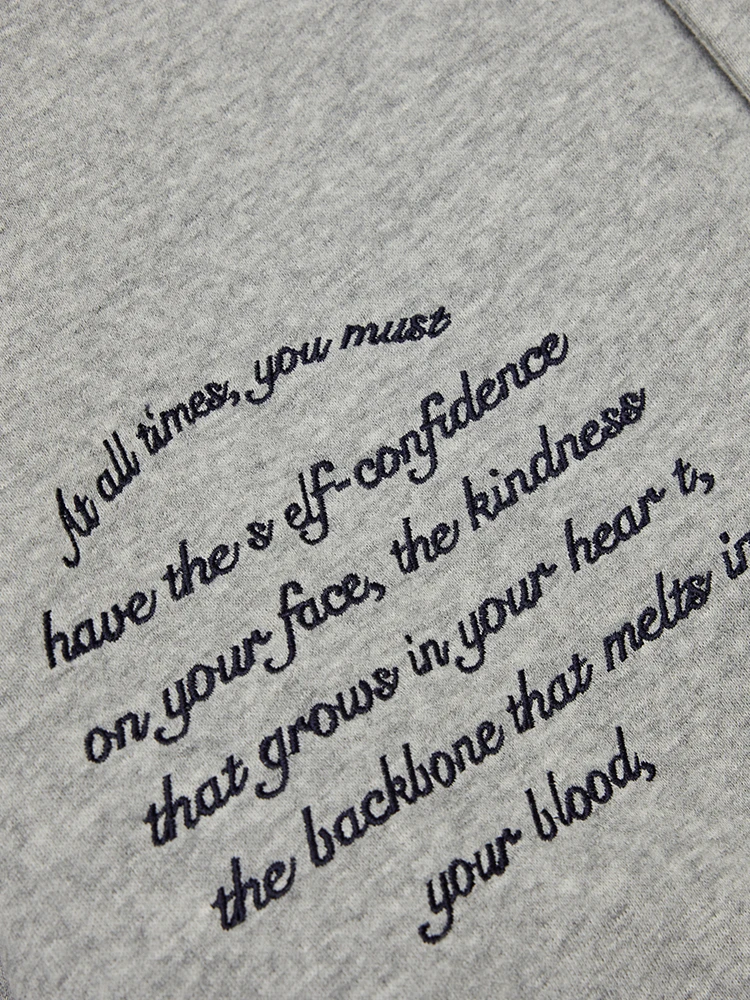 At all times, you must
have the s elf-confidence
on your face, the kindness
that grows in your hear t,
the backbone that melts in
your blood,